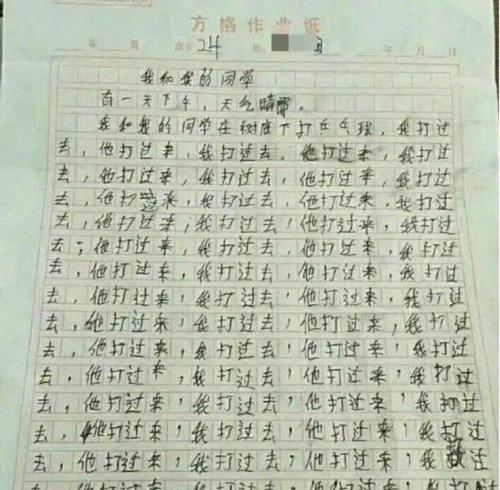 方格作业纸
年 月 座号 24 年 月 日
我和我的同学
有一天下午，天气晴朗。
我和我的同学在树底下打乒乓球，我打过
去，他打过来，我打过去，他打过来，我打过
去，他打过来，我打过去，他打过来，我打过
去，他打过来，我打过去，他打过来，我打过
去，他打过来，我打过去，他打过来，我打过
去，他打过来，我打过去，他打过来，我打过
去，他打过来，我打过去，他打过来，我打过
去，他打过来，我打过去，他打过来，我打过
去，他打过来，我打过去，他打过来，我打过
去，他打过来，我打过去，他打过来，我打过
去，他打过来，我打过去，他打过来，我打过
去，他打过来，我打过去，他打过来，我打过
去，他打过来，我打过去，他打过来，我打过
去，他打过来，我打过去，他打过来，我打过
去，他打过来，我打过去，他打过来，我打过